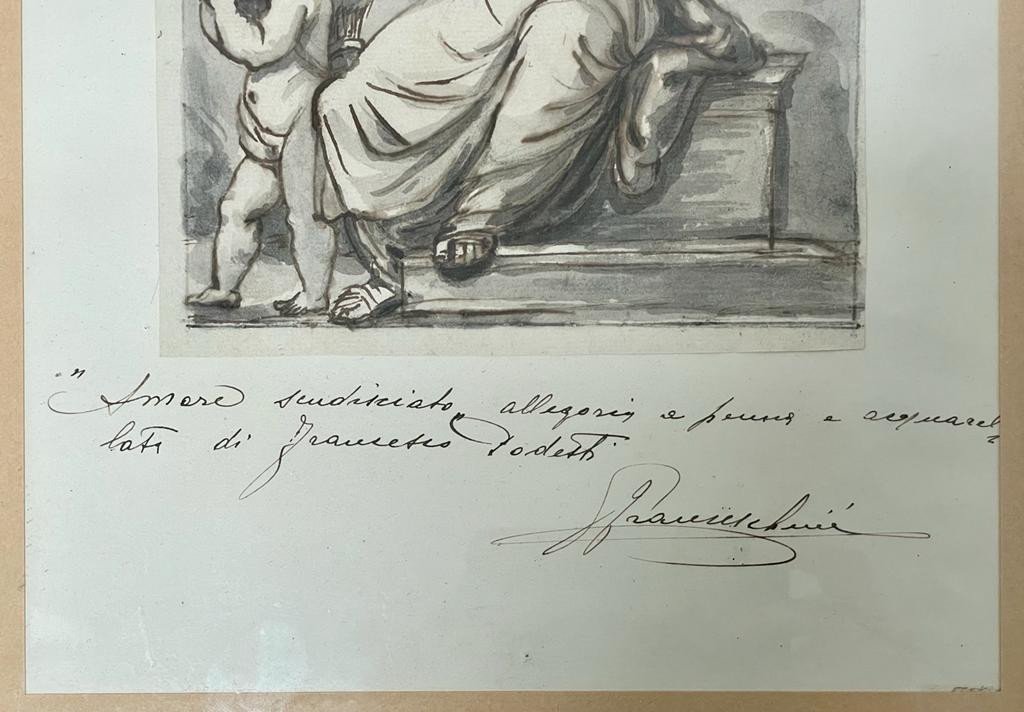 "Amore scudisciato" allegoria a penna e acquarel-
lata di Francesco Podesti
Franceschini